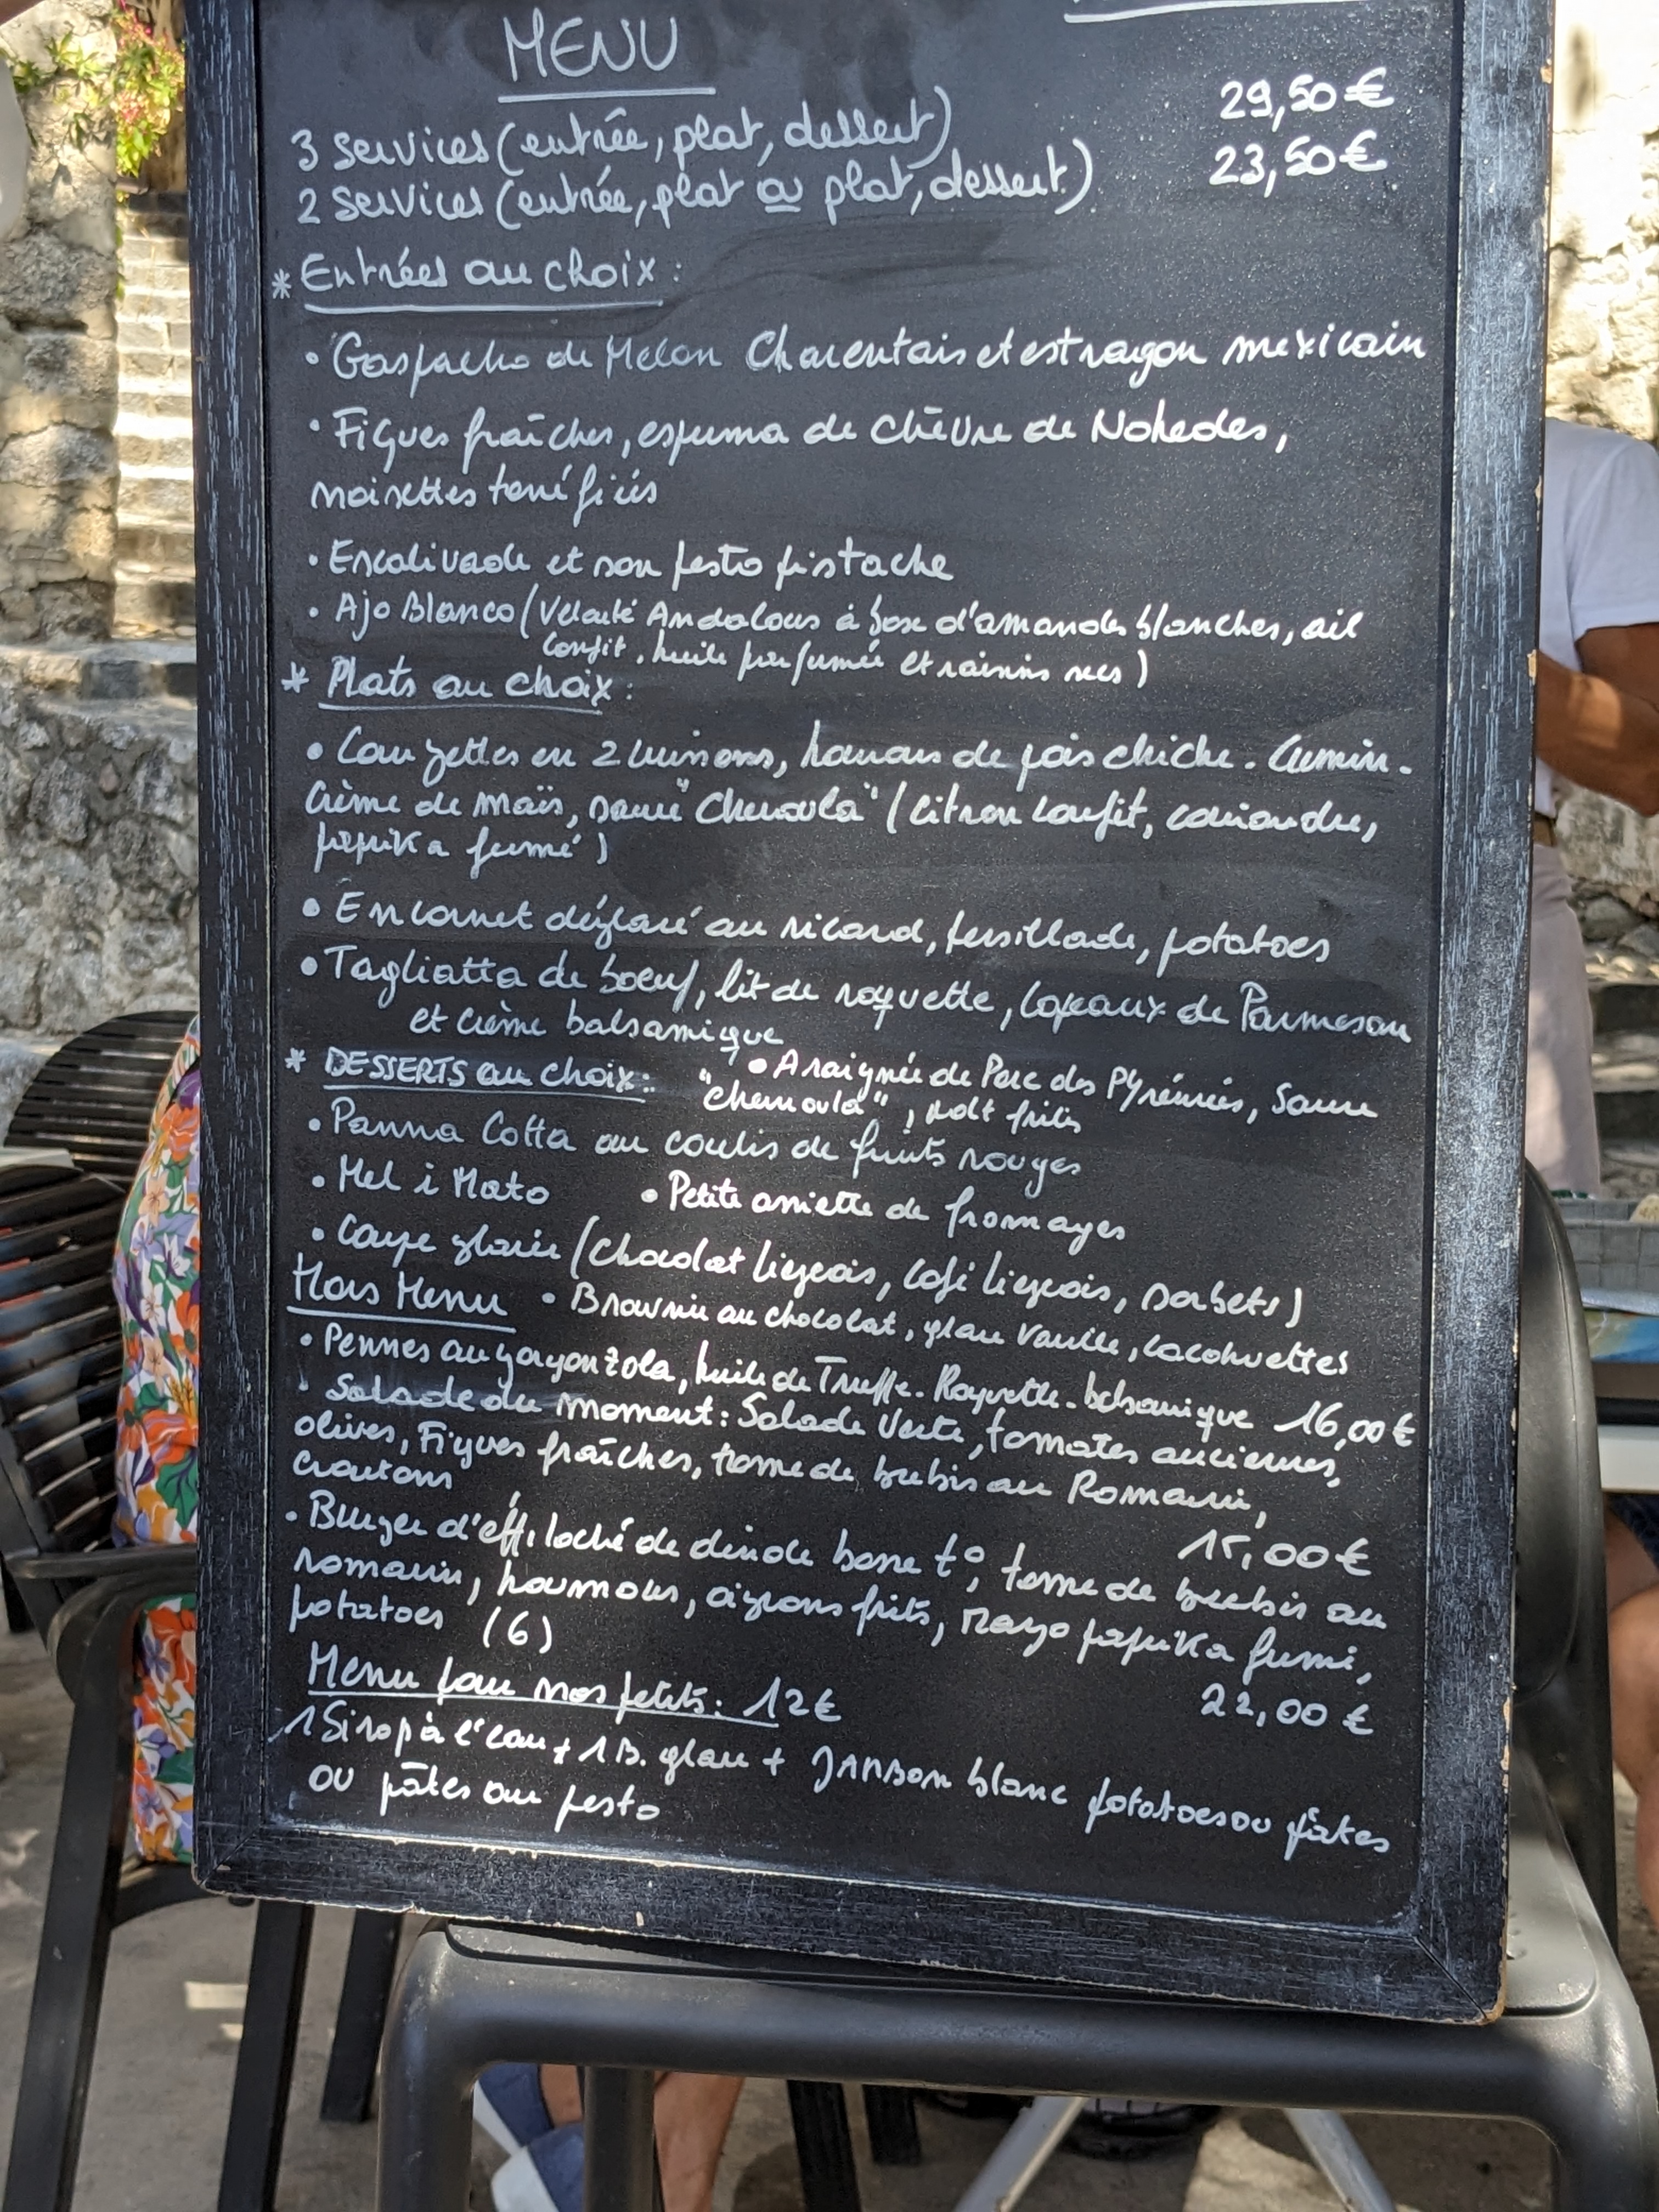 MENU
3 services (entrée, plat, dessert) 29,50 €
2 services (entrée, plat ou plat, dessert) 23,50 €
* Entrées au choix :
• Gaspacho de Melon Charentais et estragon mexicain
• Figues fraîches, espuma de chèvre de Nohedes,
noisettes torréfiées
• Escalivade et son pesto pistache
• Ajo Blanco (Velouté Andalous à base d'amandes blanches, ail
confit, huile parfumée et raisins secs)
* Plats au choix :
• Courgettes en 2 cuissons, houmous de pois chiche - Cumin -
Crème de maïs, sauce "Chermoula" (citron confit, coriandre,
paprika fumé)
• Encornet déglacé au ricard, persillade, potatoes
• Tagliatta de boeuf, lit de roquette, copeaux de Parmesan
et crème balsamique
• Araignée de Porc des Pyrénées, Sauce
"Chermoula", frites
* DESSERTS au choix :
• Panna Cotta au coulis de fruits rouges
• Mel i Mato • Petite assiette de fromages
• Coupe glacée (Chocolat liegeois, café liegeois, sorbets)
• Brownie au chocolat, glace vanille, cacahuettes
Hors Menu
• Pennes au gorgonzola, huile de Truffe - Roquette - balsamique 16,00 €
• Salade du moment : Salade Verte, tomates anciennes,
olives, Figues fraîches, tome de brebis au Romarin,
croutons 15,00 €
• Burger d'effiloché de dinde basse t°, tome de brebis au
romarin, houmous, oignons frits, mayo paprika fumé,
potatoes (6) 22,00 €
Menu pour nos petits : 12 €
1 Sirop à l'eau + 1 B. glace + JAMBON blanc potatoes ou pâtes
ou pâtes au pesto